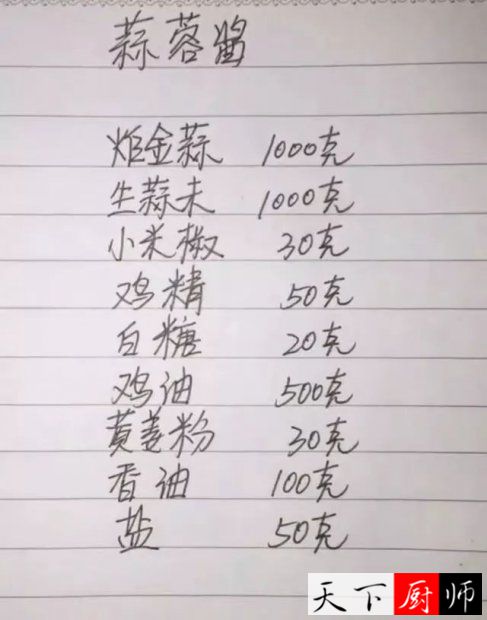 蒜蓉酱
炸金蒜 1000克
生蒜未 1000克
小米椒 30克
鸡精 50克
白糖 20克
鸡油 500克
黄姜粉 30克
香油 100克
盐 50克
天下厨师